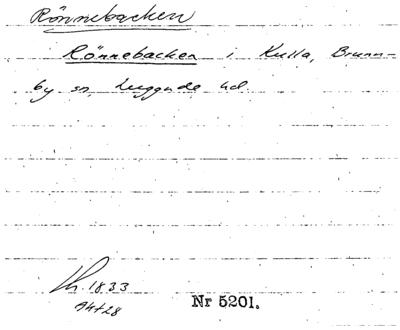 Rönnebacken
Rönnebacken i Kulla, Brunn-
by sn, Luggude hd.
Th. 1833
Nr 5201.